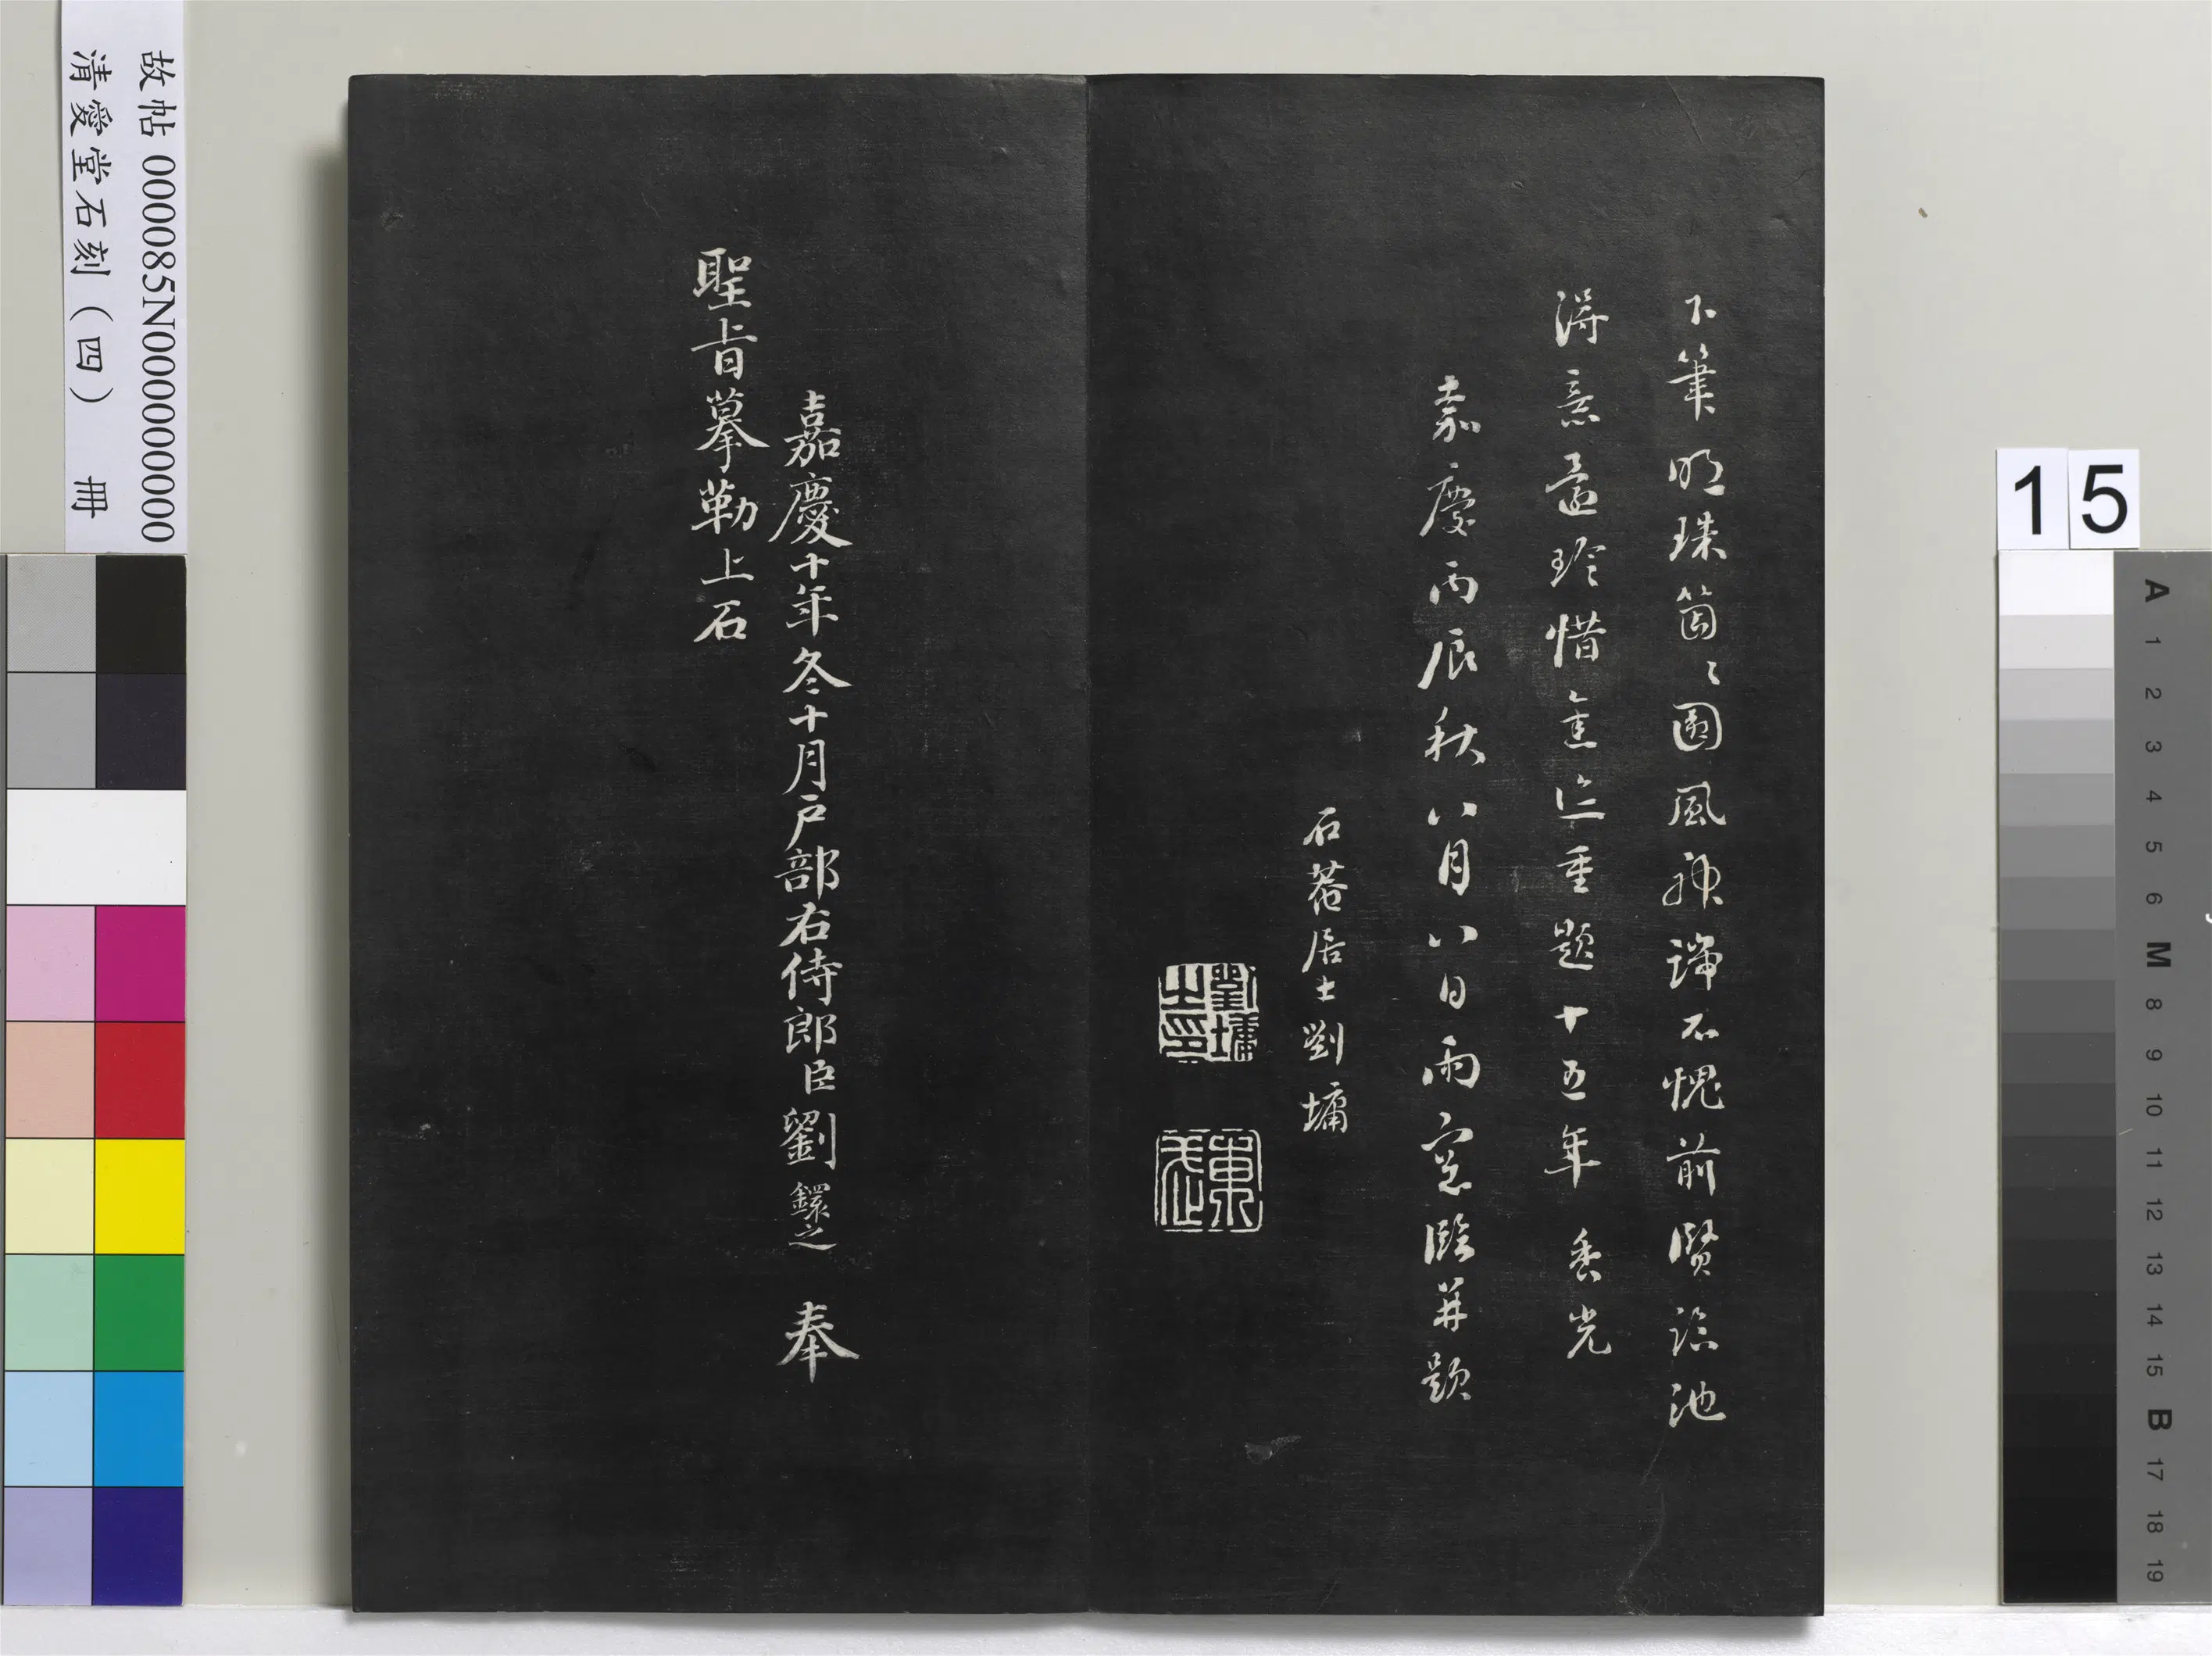 故帖 000085N000000000
清愛堂石刻（四） 冊
15
下筆明珠箇〻圓風神端不愧前賢臨池
得意還珍惜舊迹重題十五年 香光
嘉慶丙辰秋八月八日雨窓臨并題
石菴居士劉墉
劉墉之印
東武
嘉慶十年冬十月戶部右侍郎臣劉鐶之 奉
聖旨摹勒上石
A
1
2
3
4
5
6
M
8
9
10
11
12
13
14
15
B
17
18
19